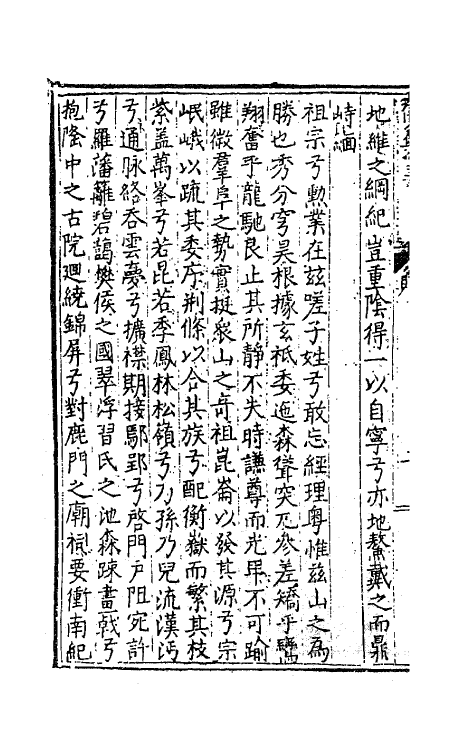 地維之綱紀豈重陰得一以自寧兮亦地鰲戴之而鼎
峙緬
祖宗兮勲業在兹嗟子姓兮敢忘經理粤惟兹山之為
勝也秀分穹昊根據玄祇委迤森聳突兀參差矯乎鸞
翔奮乎龍馳艮止其所静不失時謙尊而光卑不可踰
雖徵羣阜之勢實挺衆山之奇祖崑崙以發其源兮宗
岷峨以疏其委序荆條以合其族兮配衡嶽而繁其枝
紫盖萬峯兮若昆若季鳳林松嶺兮乃孫乃兒流漢沔
兮通脉絡吞雲夢兮擴襟期接鄢郢兮啓門戸阻宛許
兮羅藩籬碧藹樊侯之國翠浮習氏之池森踈畫戟兮
抱陰中之古院廻繞錦屏兮對鹿門之廟祠要衝南紀